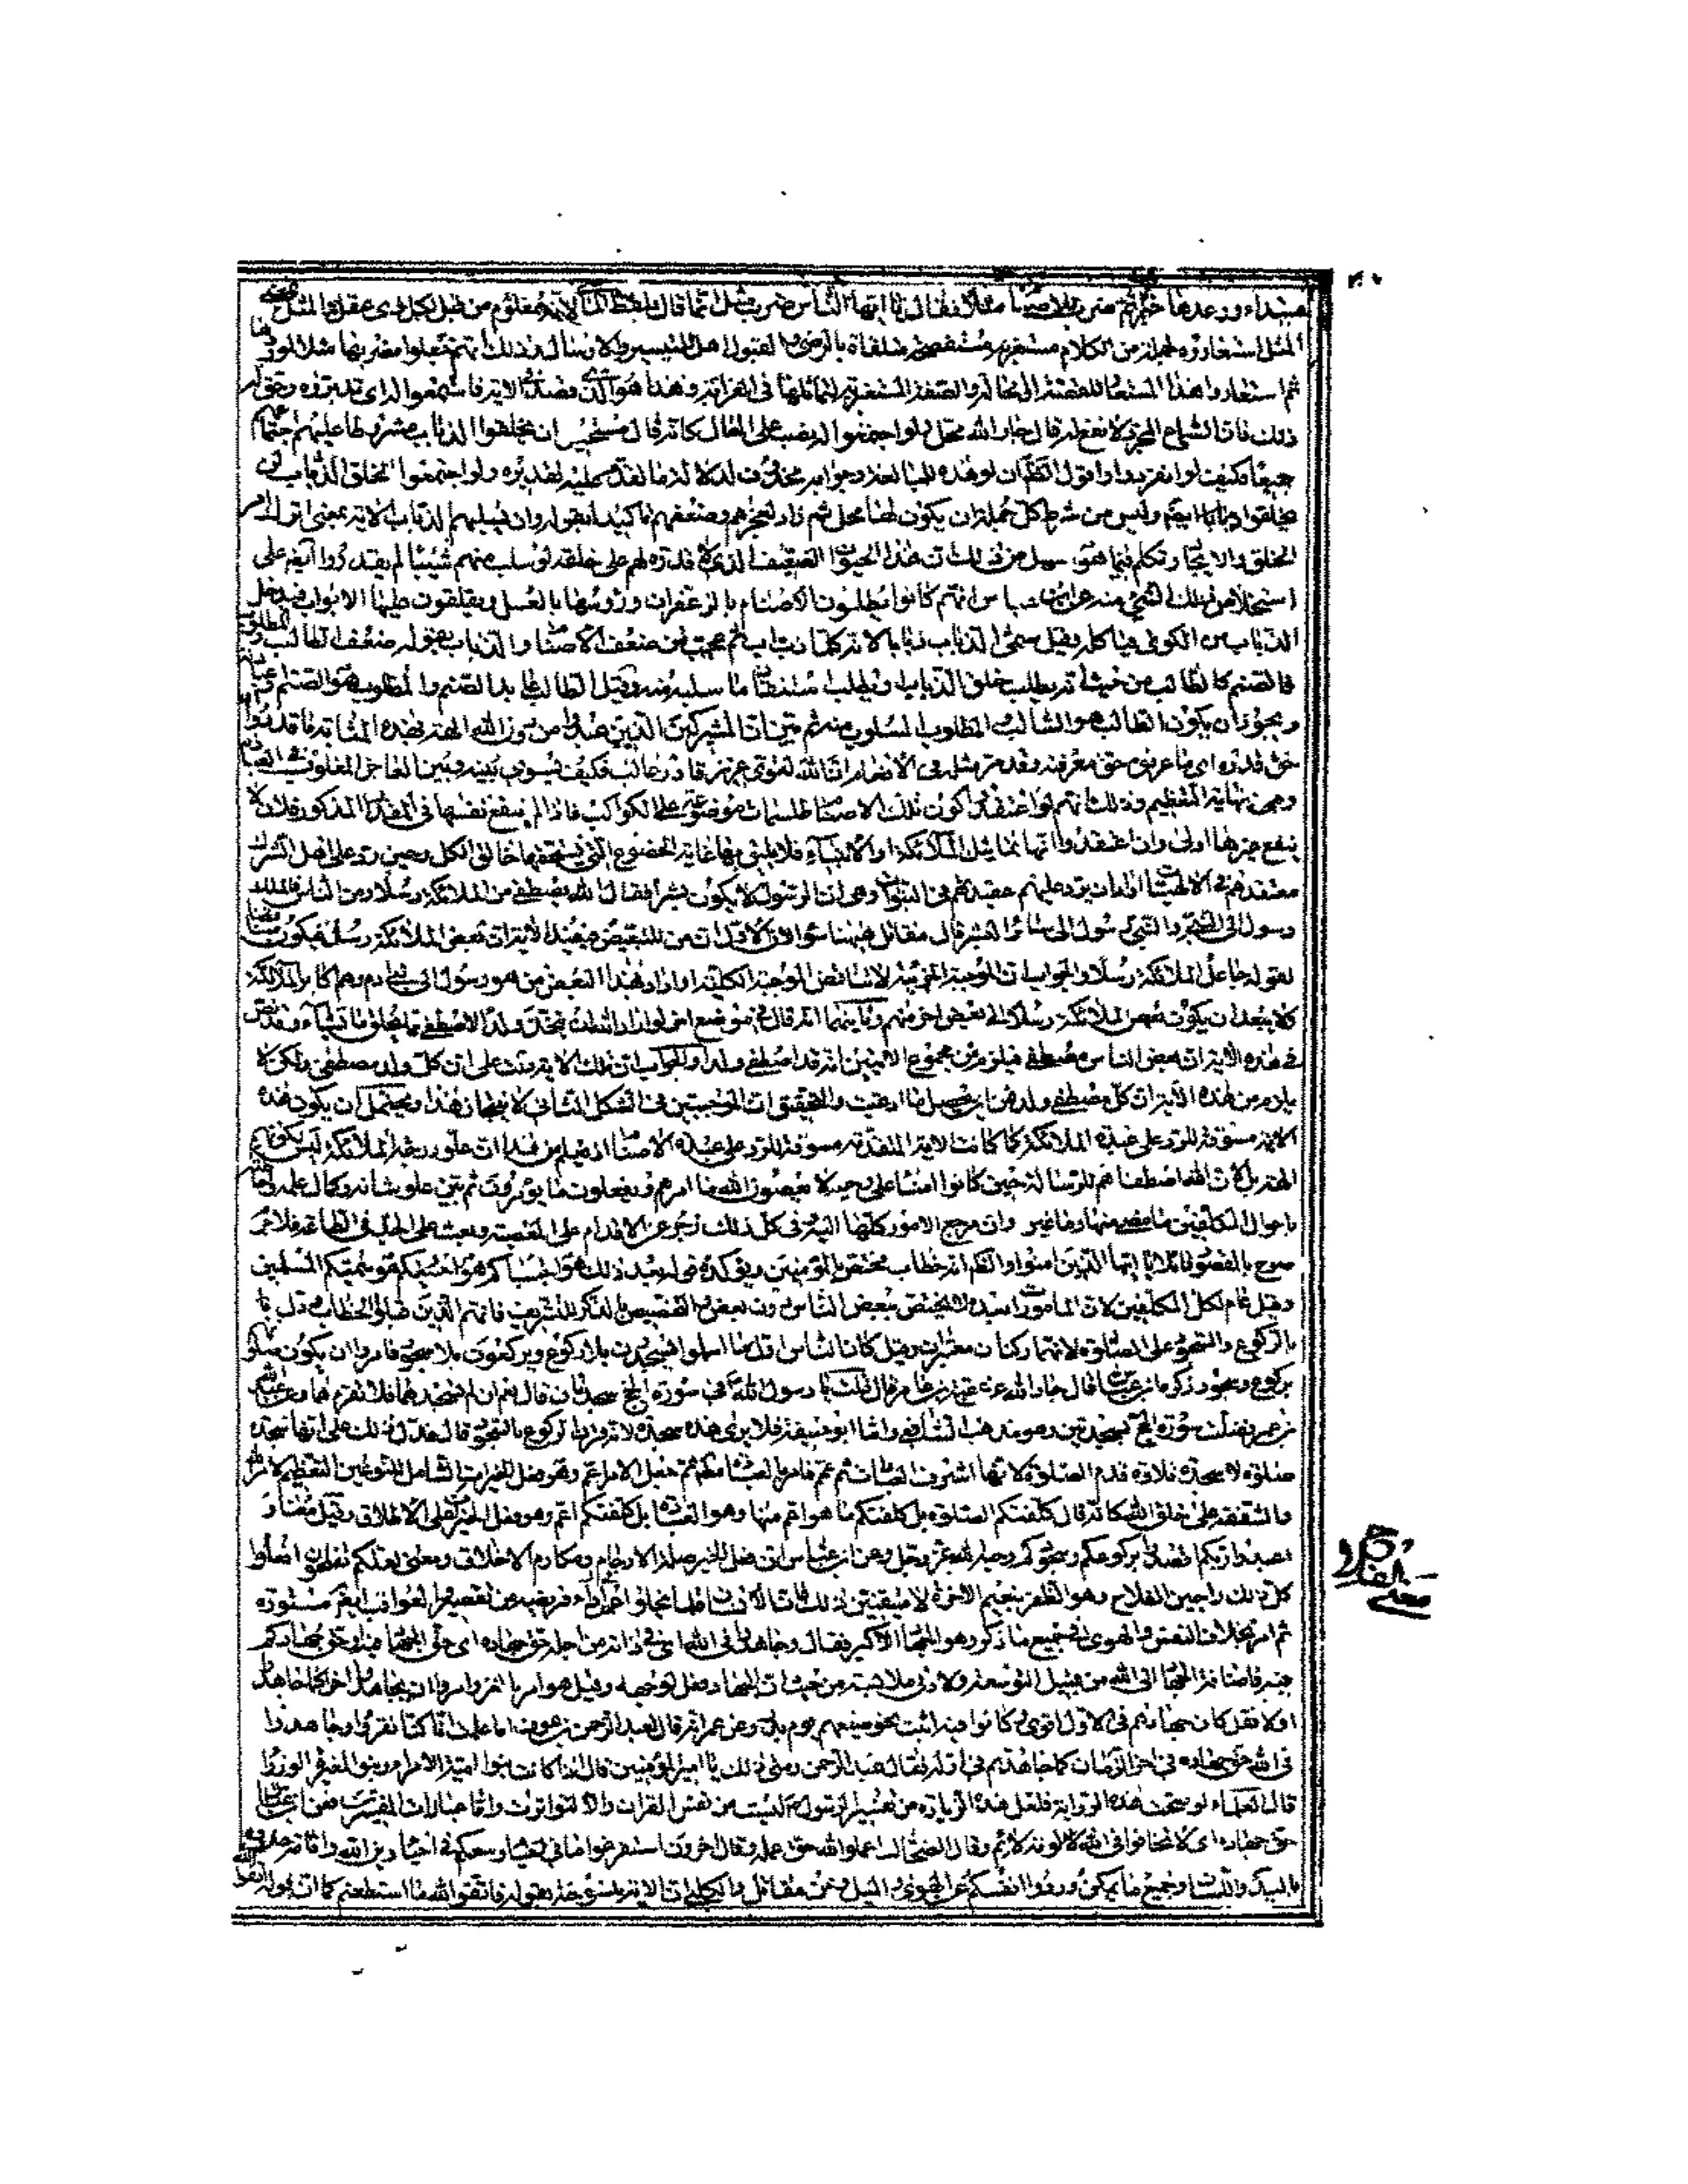 مبتداء ووعدها خبره ثم ضرب للاصنام مثلا فقال يا ايها الناس ضرب مثل انما قال بلفظ الماضى لانه معلوم من قبل لكل ذى عقل والمثل
المثل استعاروه لجملة من الكلام مستغربة مستفصحة متلقاة بالرضى والقبول اهل للتسيير والارسال وذلك انهم جعلوا مضربها مثلا لموردها
ثم استعاروا هذا المستعار للقصة او الحالة او الصفة المستغربة لتماثلها فى الغرابة وهذا هو الذى قصد فى الاية فاستمعوا له اى تدبروه وحق له
ذلك فان السماع المجرد لا نفع له قال جار الله محل ولو اجتمعوا له نصب على الحال كانه قال مستحيل ان يخلقوا الذباب مشروطا عليهم اجتماعهم
جميعا فكيف لو انفردوا واقول الظاهر ان لو هذه للمبالغة وجوابه محذوف لدلالة ما تقدم عليه تقديره ولو اجتمعوا لخلق الذباب لن
يخلقوا ذبابا ايضا وليس من شرط كل جملة ان يكون لها محل ثم زاد لعجزهم وضعفهم تاكيدا بقوله وان يسلبهم الذباب الاية بمعنى اترك امر
الخلق والايجاد وتكلم فيما هو سهل من ذلك فان هذا الحيوان الضعيف الذى لا قدرة لهم على خلقه لو سلب منهم شيئا لم يقدروا ايضا على
استخلاص ذلك الشئ منه عن ابن عباس انهم كانوا يطلون الاصنام بالزعفران ورؤسها بالعسل ويغلقون عليها الابواب فيدخل
الذباب من الكوى فياكله وقيل سمى الذباب ذبابا لانه كلما ذب آب ثم عجب من ضعف الاصنام والذباب بقوله ضعف الطالب والمطلوب
فالصنم كالطالب من حيث انه يطلب خلق الذباب ويطلب استنقاذ ما سلبه منه وقيل الطالب عابد الصنم والمطلوب هو الصنم او عبادته
ويجوز ان يكون الطالب هو السالب والمطلوب المسلوب منه ثم بين ان المشركين الذين عبدوا من دون الله الهة بهذه المثابة ما قدروا الله
حق قدره اى ما عرفوه حق معرفته وقد مر مثله فى الانعام ان الله لقوى عزيز قادر غالب فكيف يسوى بينه وبين العاجز المغلوب فى العبادة
وهى نهاية التعظيم وذلك انهم لو اعتقدوا كون تلك الاصنام طلسمات موضوعة على الكواكب فاذا لم ينفع نفسها فى القدر المذكور فلان لا
ينفع غيرها اولى وان اعتقدوا انها تماثيل الملائكة او الانبياء فلا يليق بها غاية الخضوع التى يستحقها خالق الكل وحين رد على اهل الشرك
معتقدهم فى الالهيات اراد ان يرد عليهم عقيدتهم فى النبوات وهى ان الرسول لا يكون بشرا فقال الله يصطفى من الملائكة رسلا ومن الناس فالملك
رسول الى النبى والنبى رسول الى سائر البشر قال مقاتل ههنا سؤالان الاول ان من للتبعيض فيفيد الاية ان بعض الملائكة رسل فيكون مناقضا
لقوله جاعل الملائكة رسلا والجواب ان الموجبة الجزئية لا تناقض الموجبة الكلية او اراد بهذا البعض من هو رسول الى بنى ادم وهم اكابر الملائكة
ولا يبعد ان يكون بعض الملائكة رسلا الى بعض اخر منهم وثانيهما انه قال فى موضع اخر لو اراد الله ان يتخذ ولدا لاصطفى مما يخلق ما يشاء وقد نص
فى هذه الاية ان بعض الناس مصطفى فيلزم من مجموع الايتين انه قد اصطفى ولدا والجواب ان تلك الاية دلت على ان كل ولد مصطفى ولكن لا
يلزم من هذه الاية ان كل مصطفى ولد فمن اين يحصل ما ادعيت والتحقيق ان الموجبتين فى الشكل الثانى لا ينتجان هذا ويحتمل ان يكون هذه
الاية مسوقة للرد على عبدة الملائكة كما كانت الاية المتقدمة مسوقة للرد على عبدة الاصنام اذ يعلم من هذا ان علو درجة الملائكة ليس لكونهم
الهة بل لان الله اصطفاهم للرسالة حين كانوا امناء على وحيه لا يعصون الله ما امرهم ويفعلون ما يؤمرون ثم بين علو شانه وكمال علمه واحاطته
باحوال المكلفين ما مضى منها وما غبر وان مرجع الامور كلها اليه وفى كل ذلك زجر عن الاقدام على المعصية وبعث على الجد فى الطاعة فلا جرم
صرح بالمقصود قائلا يا ايها الذين امنوا والظاهر انه خطاب مختص بالمؤمنين ويؤكده قوله بعيد ذلك هو اجتباكم هو سميكم المسلمين
وقيل عام لكل المكلفين لان المامورات بهذه لا يختص ببعض الناس دون بعض والتخصيص بالذكر للتشريف فانهم الذين قبلوا الخطاب دل با
بالركوع والسجود على الصلوة لانهما ركنان معتبران وقيل كان الناس اول ما اسلموا يسجدون بلا ركوع ويركعون بلا سجود فامروا ان يكون صلوتهم
بركوع وسجود ذكره ابن عباس قال جار الله عن عقبة بن عامر قال قلت يا رسول الله فى سورة الحج سجدتان قال نعم ان لم تسجدهما فلا تقرءهما وعن عبد الله
بن عمر فضلت سورة الحج بسجدتين وهو مذهب الشافعى واما ابو حنيفة فلا يرى هذه سجدة لانه قرن الركوع بالسجود قال فدل ذلك على انها سجدة
صلوة لا سجدة تلاوة قدم الصلوة لانها اشرف العبادات ثم عم فامر بالعبادة مطلقا ثم جعل الامر اعم وهو فعل الخيرات الشامل للنوعين التعظيم لامر الله
والشفقة على خلق الله كانه قال كلفتكم الصلوة بل كلفتكم ما هو اعم منها وهو العبادة بل كلفتكم اعم وهو فعل الخير على الاطلاق وقيل معناه
اعبدوا ربكم اقصدوا بركوعكم وسجودكم وجه الله عز وجل وعن ابن عباس ان فعل الخير صلة الارحام ومكارم الاخلاق ومعنى لعلكم تفلحون افعلوا
كل ذلك راجين الفلاح وهو الظفر بنعيم الاخرة لا متيقنين ذلك فان الانسان قلما يخلو اداء فريضة من تقصير والعواقب ايضا مستورة
ثم امر بخلاف النفس والهوى فى جميع ما ذكر وهو الجهاد الاكبر فقال وجاهدوا فى الله اى فى ذاته ومن اجله حق جهاده اى حق الجهاد فيه او حق جهادكم
فيه فاضافة الجهاد الى الله من قبيل التوسعة ولادنى ملابسة من حيث ان الجهاد فعل لوجهه وقيل هو امر بالغزو امروا ان يجاهدوا اخرا كما جاهدوا
اولا فقد كان جهادهم فى الاول اقوى وكانوا فيه اثبت نحو صنيعهم يوم بدر وعن عمر انه قال لعبد الرحمن بن عوف اما علمت انا كنا نقرء وجاهدوا
فى الله حق جهاده فى اخر الزمان كما جاهدتم فى اوله فقال عبد الرحمن ومتى ذلك يا امير المؤمنين قال اذا كانت بنو امية الامراء وبنو المغيرة الوزراء
قال العلماء لو صحت هذه الرواية فلعل هذه الزيادة من تفسير الرسول ليست من نفس القران والا لتواترت واما عبارات المفسرين فعن ابن عباس
حق جهاده اى لا تخافوا فى الله لومة لائم وقال الضحاك اعملوا لله حق عمله وقال اخرون استفرغوا ما فى وسعكم فى احياء دين الله واقامة حدوده
باليد واللسان وجميع ما يمكن وردوا انفسكم عن الهوى والميل وعن مقاتل والكلبى ان الاية منسوخة بقوله فاتقوا الله ما استطعتم كما ان قوله اتقوا الله
معنى الفلاح